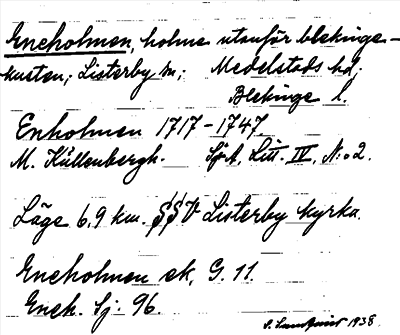 Eneholmen, holme utanför blekinge-
kusten; Listerby sn; Medelstads hd;
Blekinge l.
Enholmen 1717-1747
M. Kullenbergh. Sjö A, Litt. IV, N:o 2.
Läge 6,9 km. SSV Listerby kyrka.
Eneholmen ek, G. 11.
Eneh. Sj. 96.
S. Lundquist 1938.